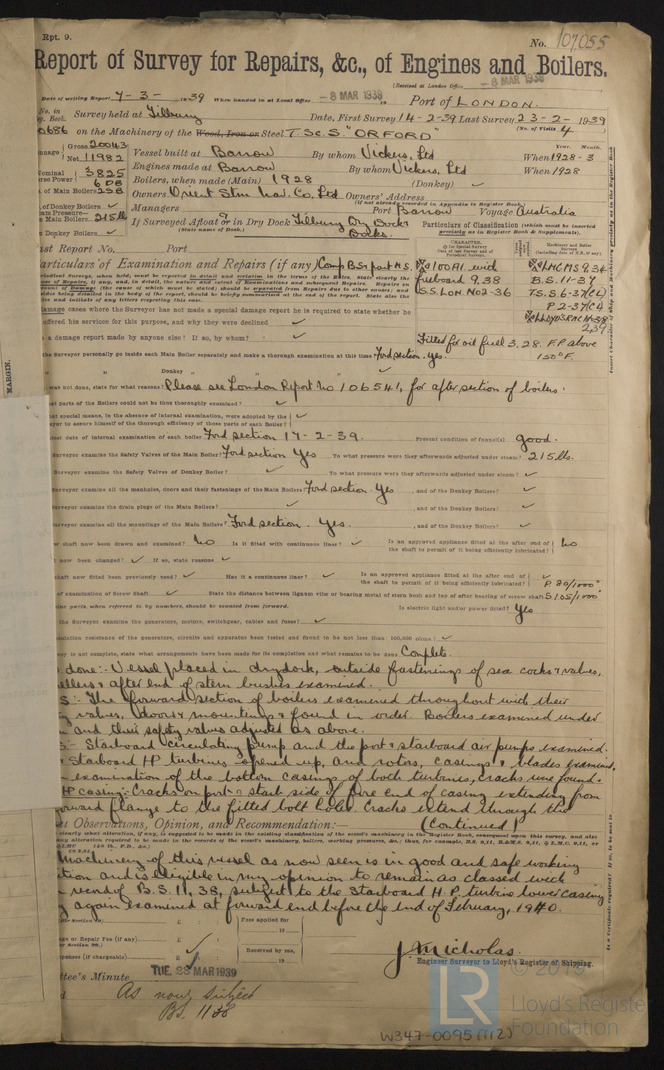 Rpt. 9.
No. 107,055
Report of Survey for Repairs, &c., of Engines and Boilers.
(Received at London Office
-8 MAR 1939
Date of writing Report 7-3- 1939 When handed in at Local Office -8 MAR 1939 Port of LONDON.
No. in Survey held at Tilbury Date, First Survey 14-2-39 Last Survey 23-2-1939
Book.
(No. of Visits 4
0686 on the Machinery of the Wood, Iron or Steel T.Sc.S "ORFORD"
Gross 20043
Net 11982
Vessel built at Barrow By whom Vickers, Ltd When 1928-3
Year. Month.
Engines made at Barrow By whom Vickers, Ltd When 1928
3825
Boilers, when made (Main) 1928 (Donkey) ✓
of Main Boilers
Owners Orient Stm Nav. Co. Ltd Owners' Address
(if not already recorded in Appendix to Register Book)
of Donkey Boilers ✓
Managers Port Barrow Voyage Australia
Main Boilers 215 lb
If Surveyed Afloat or in Dry Dock Tilbury Dry Dock
(State name of Dock.) Docks.
Donkey Boilers ✓
Particulars of Classification (which must be inserted
precisely as in Register Book & Supplements).
Last Report No. Port
Particulars of Examination and Repairs (if any) Comp. BS & part M.S.
100A1 with
freeboard 9,38
S.S. Lon. No2-36
LMC MS 9,34
B.S. 11-37
T.S.S 6-37(CL)
P 2-37(CL
2,39
Fitted for oil fuel 3.28. F.P above
150°F.
damage cases where the Surveyor has not made a special damage report he is required to state whether he
offered his services for this purpose, and why they were declined ✓
a damage report made by anyone else? If so, by whom? ✓
the Surveyor personally go inside each Main Boiler separately and make a thorough examination at this time Ford section. Yes.
" " Donkey " " " ✓
was not done, state for what reasons? Please see London Report No 106541, for after section of boilers.
parts of the Boilers could not be thus thoroughly examined? ✓
special means, in the absence of internal examination, were adopted by the
Surveyor to assure himself of the thorough efficiency of those parts of each Boiler? ✓
latest date of internal examination of each boiler Ford section 17-2-39. Present condition of funnel(s) good.
Surveyor examine the Safety Valves of the Main Boiler? Ford section Yes To what pressure were they afterwards adjusted under steam? 215 lbs.
Surveyor examine the Safety Valves of Donkey Boiler? ✓ To what pressure were they afterwards adjusted under steam? ✓
Surveyor examine all the manholes, doors and their fastenings of the Main Boilers Ford section Yes , and of the Donkey Boilers? ✓
Surveyor examine the drain plugs of the Main Boilers? ✓ , and of the Donkey Boilers? ✓
Surveyor examine all the mountings of the Main Boilers? Ford section. Yes. , and of the Donkey Boilers? ✓
shaft now been drawn and examined? No Is it fitted with continuous liner? ✓ Is an approved appliance fitted at the after end of
the shaft to permit of it being efficiently lubricated? No
now been changed? ✓ If so, state reasons ✓
shaft now fitted been previously used? ✓ Has it a continuous liner? ✓ Is an approved appliance fitted at the after end of
the shaft to permit of it being efficiently lubricated? ✓
of examination of Screw Shaft ✓ State the distance between lignum vitæ or bearing metal of stern bush and top of after bearing of screw shaft P. 80/1000"
S 105/1000"
parts, when referred to by numbers, should be counted from forward. Is electric light and/or power fitted? Yes
the Surveyor examine the generators, motors, switchgear, cables and fuses? ✓
insulation resistance of the generators, circuits and apparatus been tested and found to be not less than 100,000 ohms? ✓
is not complete, state what arrangements have been made for its completion and what remains to be done Complete.
done:- Vessel placed in drydock, outside fastenings of sea cocks & valves,
propellers & after end of stern bushes examined.
The forward section of boilers examined throughout with their
valves, doors & mountings & found in order. Boilers examined under
and their safety valves adjusted as above.
Starboard circulating pump and the port & starboard air pumps examined.
& Starboard HP turbines opened up, and rotors, casings & blades examined,
examination of the bottom casings of both turbines, cracks were found.
HP casing: Cracks on port & starb. side of fore end of casing extending from
forward flange to the fitted bolt hole. Cracks extend through the
(Continued)
Observations, Opinion, and Recommendation:—
Machinery of this vessel as now seen is in good and safe working
condition and is eligible in my opinion to remain as classed with
record of B.S. 11,38, subject to the Starboard H.P. turbine lower casing
again examined at forward end before the end of February, 1940.
Fees applied for
19
Received by me,
19
or Repair Fee (if any)
Expenses (if chargeable)
J Nicholas.
Engineer Surveyor to Lloyd's Register of Shipping.
Committee's Minute TUE. 28 MAR 1939
As now, subject
BS. 11 38
MARGIN.
© 2019
LR
Lloyd's Register
Foundation
W347-0095 (1/2)